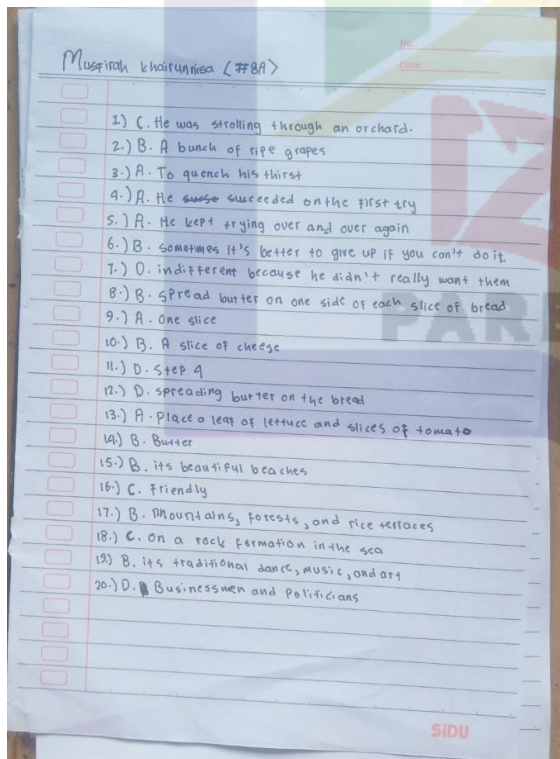 No.
Date:
Musfirah khairunnisa (#8A)
1.) C. He was strolling through an orchard.
2.) B. A bunch of ripe grapes
3.) A. To quench his thirst
4.) A. He succeeded on the first try
5.) A. He kept trying over and over again
6.) B. sometimes it's better to give up if you can't do it
7.) D. indifferent because he didn't really want them
8.) B. spread butter on one side of each slice of bread
9.) A. One slice
10.) B. A slice of cheese
11.) D. Step 4
12.) D. spreading butter on the bread
13.) A. Place a leaf of lettuce and slices of tomato
14.) B. Butter
15.) B. its beautiful beaches
16.) C. Friendly
17.) B. Mountains, forests, and rice terraces
18.) C. On a rock formation in the sea
19.) B. its traditional dance, music, and art
20.) D. Businessmen and Politicians
SiDU
PARE